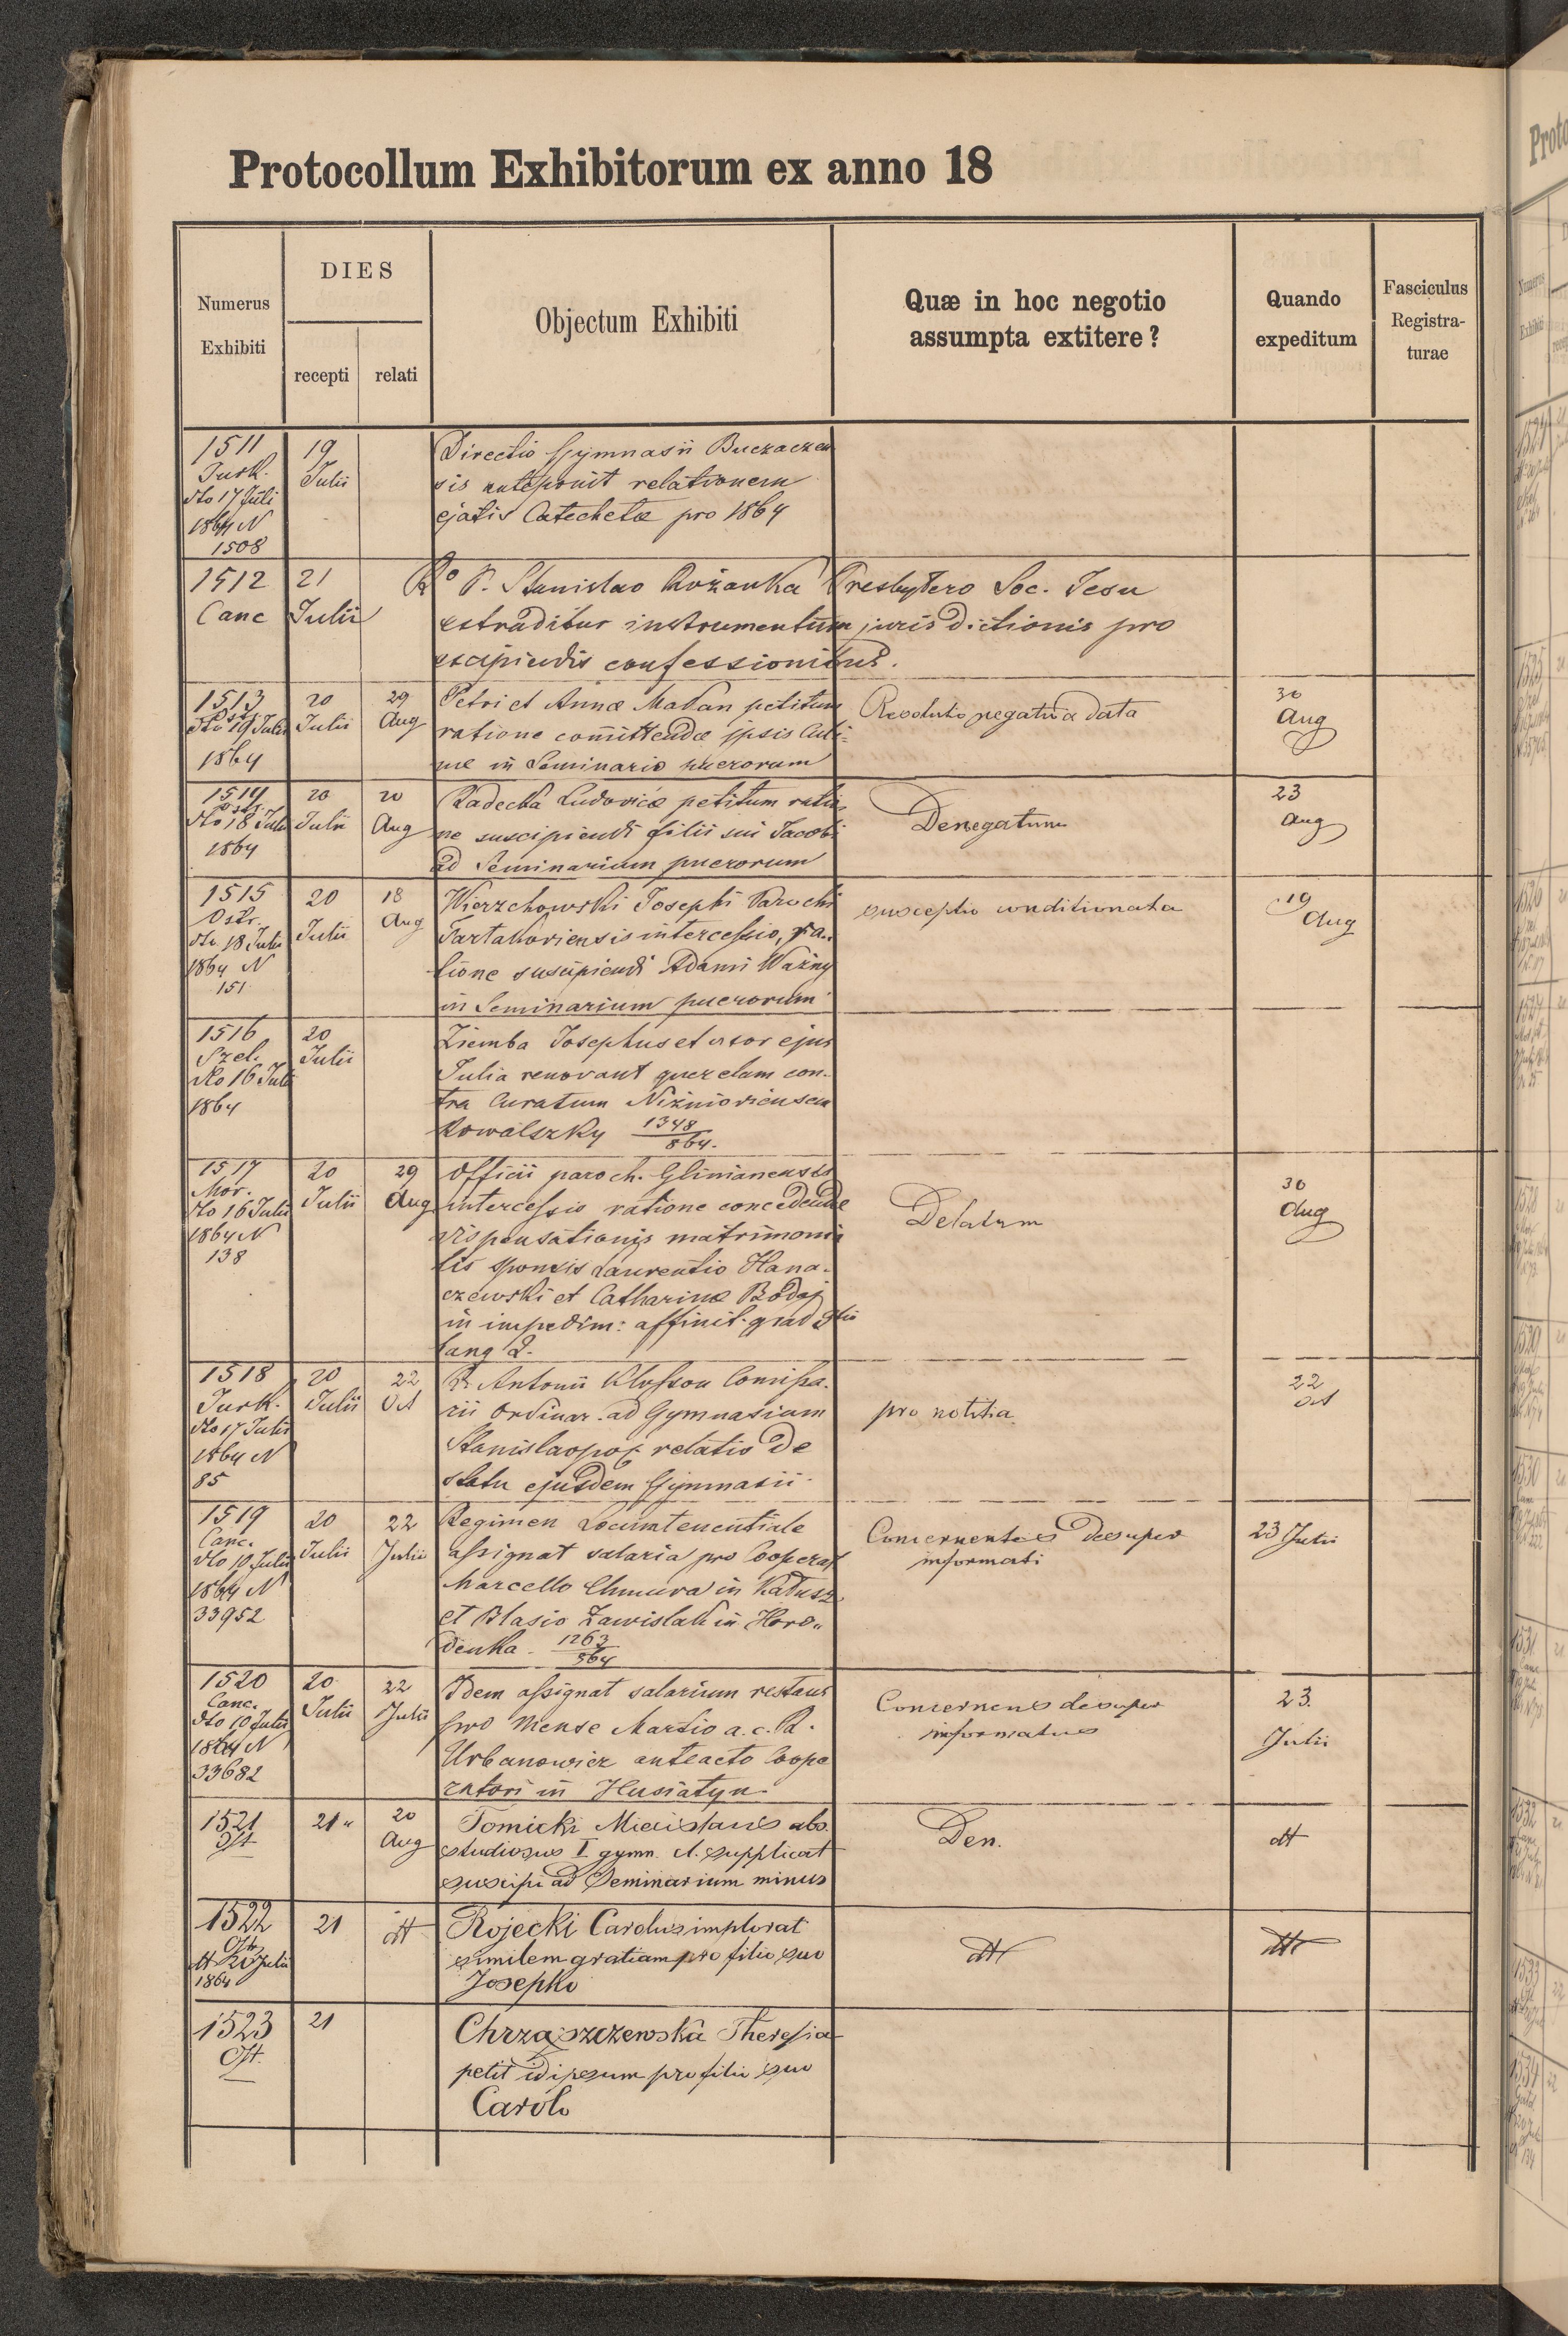 Protocollum Exhibitorum ex anno 18
Numerus
Exhibiti
DIES
recepti
relati
Objectum Exhibiti
Quæ in hoc negotio
assumpta extitere?
Quando
expeditum
Fasciculus
Registra-
turae
1511
Turk.
dto 17 Juli
1864 N
1508
19
Julii
Directio Gymnasii Buczaczen
sis anteponit relationem
ejatis Catechetæ pro 1864
1512
Canc
21
Julii
Ro P. Stanislao Rożanka Presbytero Soc. Jesu
extraditur instrumentum jurisdictionis pro
excipiendis confessionibus.
1513
dto 19 Julii
1864
20
Julii
29
Aug
Petri et Annæ Madan petitum
ratione comittendæ ipsis Culi-
næ in Seminario puerorum
Resolutio negativa data
30
Aug
1514
dto 18 Juli
1864
20
Julii
20
Aug
Radecka Ludovicæ petitum ratio
ne suscipiendi filii sui Jacobi
ad Seminarium puerorum
Denegatum
23
Aug
1515
Ostr.
dto 18 Julii
1864 N
151
20
Julii
18
Aug
Wierzchowski Josephi Parochi
Tartakoviensis intercessio, ra..
tione suscipiendi Adami Ważny
in Seminarium puerorum
susceptio conditionata
19
Aug
1516
Szcl.
dto 16 Juli
1864
20
Julii
Ziemba Josephus et uxor ejus
Julia renovant querelam con-
tra Curatum Niżnioviensem
Kowalszky 1348
864.
1517
Mor.
dto 16 Julii
1864 N
138
20
Julii
29
Aug
Officii paroch. Glinianensis
intercessio ratione concedendæ
dispensationis matrimonia
lis sponsis Laurentio Hana-
czewski et Catharinæ Bodaj
in impedim: affinit. grad 3tii
tang 2.
Delatum
30
Aug
1518
Turk.
dto 17 Julii
1864 N
85
20
Julii
22
Oct
R. Antonii Klosson Comissa.
rii Ordinar. ad Gymnasium
Stanislaopol relatio de
statu ejusdem Gymnasii
pro notitia.
22
Oct
1519
Canc.
dto 10 Julii
1864 N
33952
20
Julii
22
Julii
Regimen Locumtenentiale
assignat salaria pro Cooperat
Marcello Chmura in Kałusz
et Blasio Zawislak in Horo..
denka 1263
864
Concernentes desuper
informati
23 Julii
1520
Canc.
dto 10 Julii
1864 N
33682
20
Julii
22
Julii
Idem assignat salarium restans
pro Mense Martio a. c. R.
Urbanowicz anteacto Coope
ratori in Husiatyn
Concernens desuper
informatus
23.
Julii
1521
21 "
20
Aug
Tomicki Miecislaus abs.
studiosus I gymn. cl. supplicat
suscipi ad Seminarium minus
Den.
dt
1522
dt 20 Julii
1864
21
dt
Rojecki Carolus implorat
similem gratiam pro filio suo
Josepho
dtt
dtt
1523
21
Chrząszczewska Theresia
petit idipsum pro filio suo
Carolo